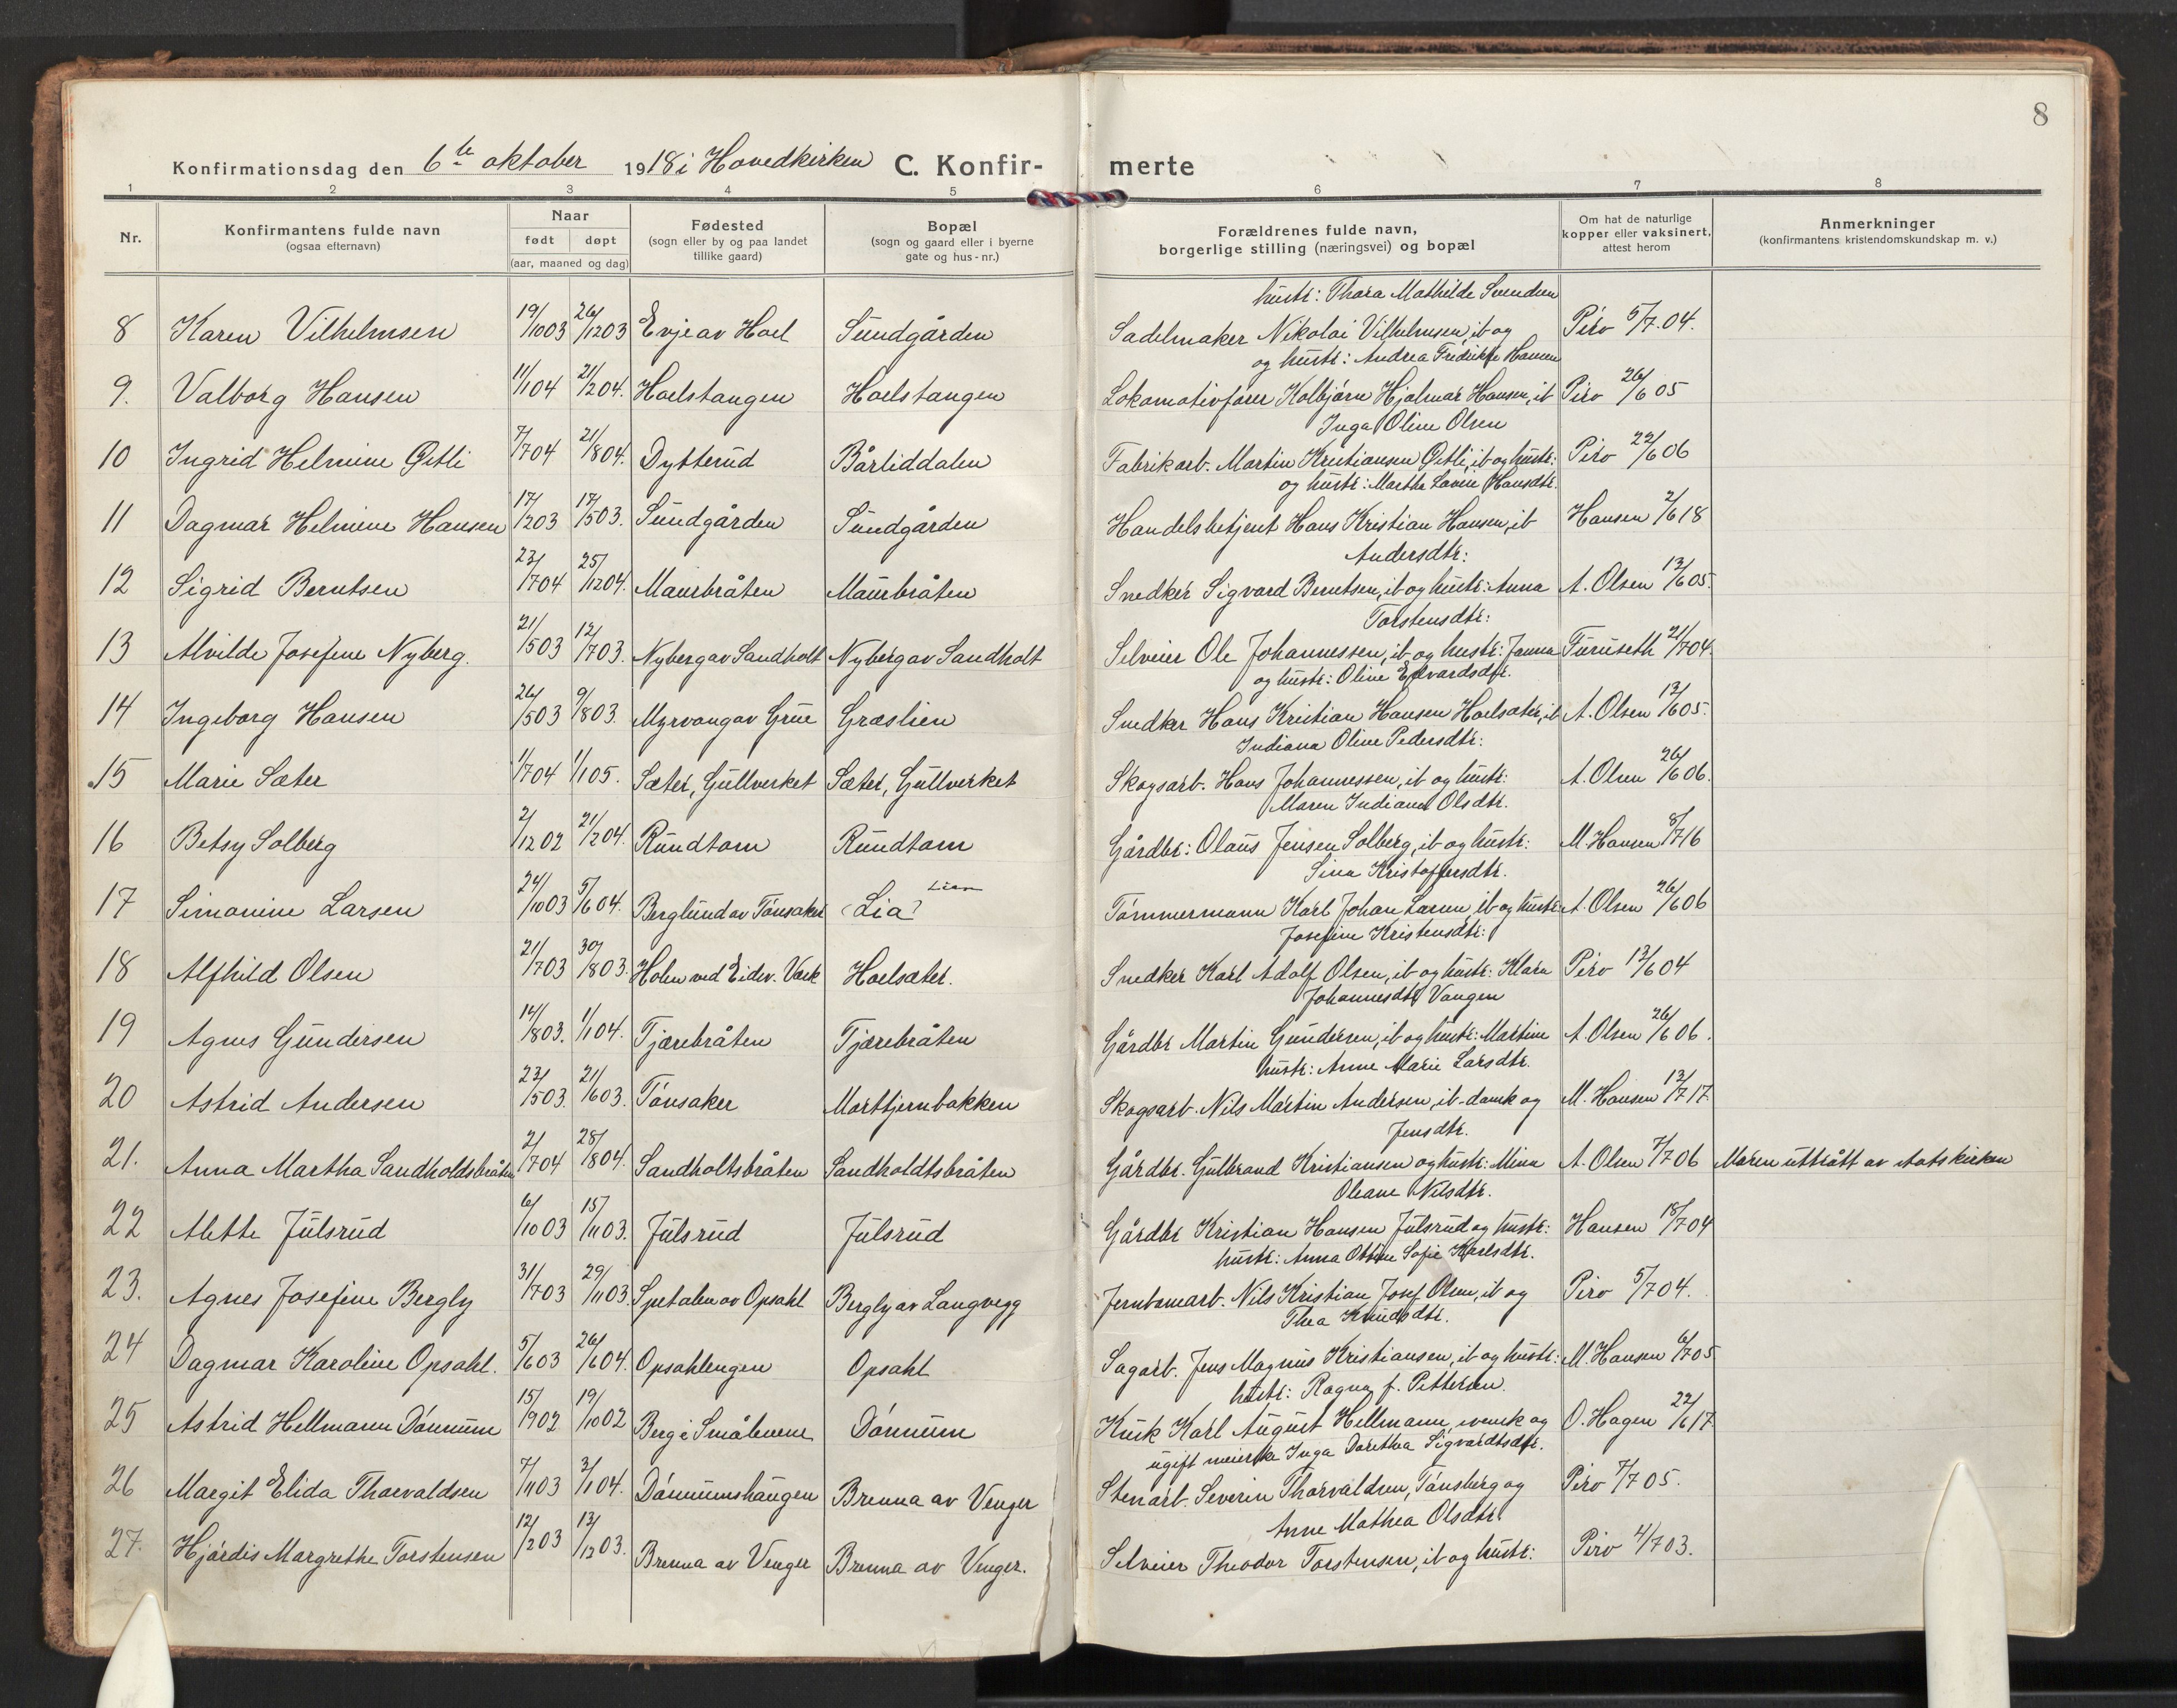 8
Konfirmationsdag den 6te oktober 1918 i Hovedkirken C. Konfir- merte
1 2 3 4 5 6 7 8
Nr. Konfirmantens fulde navn (ogsaa efternavn) Naar født døpt (aar, maaned og dag) Fødested (sogn eller by og paa landet tillike gaard) Bopæl (sogn og gaard eller i byerne gate og hus-nr.) Forældrenes fulde navn, borgerlige stilling (næringsvei) og bopæl Om hat de naturlige kopper eller vaksinert, attest herom Anmerkninger (konfirmantens kristendomskundskap m. v.)
hustr: Thora Mathilde Svendsen
8 Karen Vilhelmsen 19/10 03 26/12 03 Evje av Hoel Sundgården Sadelmaker Nikolai Vilhelmsen, ib og Piro 5/7.04.
og hustr: Andrea Fredrikke Hansen
9. Valborg Hansen 11/1 04 21/2 04. Hoelstangen Hoelstangen Lokomotivfører Kolbjørn Hjalmar Hansen, ib Piro 26/6 05
Inga Oline Olsen
10 Ingrid Helmine Østli 7/7 04 21/8 04. Dytterud Bårliddalen Fabrikarb. Martin Kristiansen Østli, ib og hustr: Piro 22/6 06
og hustr: Marthe Lovise Hansdtr.
11 Dagmar Helmine Hansen 17/2 03 17/5 03. Sundgården Sundgården Handelsbetjent Hans Kristian Hansen, ib Hansen 2/6 18
Andersdtr:
12 Sigrid Berntsen 23/7 04 25/12 04. Maurbråten Maurbråten Snedker Sigvard Berntsen, ib og hustr: Anna A. Olsen 13/6 05.
Torstensdtr:
13 Alvilde Josefine Nyberg. 21/5 03 12/7 03. Nyberg av Sandholt Nyberg av Sandholt Selveier Ole Johannessen, ib og hustr: Janna Furuseth 21/7 04.
og hustr: Oline Edvardsdtr.
14 Ingeborg Hansen 26/5 03 9/8 03. Myrvang av Grue Græslien Snedker Hans Kristian Hansen Hoelsæter, ib A. Olsen 13/6 05.
Indiana Oline Pedersdtr:
15 Marie Sæter 1/7 04 1/1 05. Sæter, Gullverket Sæter, Gullverket Skogsarb. Hans Johannessen, ib og hustr: A. Olsen 26/6 06.
Maren Indiane Olsdtr.
16 Betsy Solberg 2/12 02 21/2 04. Rundtom Rundtom Gårdbr: Olaus Jensen Solberg, ib og hustr: M. Hansen 8/7 16
Sina Kristoffersdtr.
17 Simonine Larsen 24/10 03 5/6 04. Berglund av Tønsaker (Lia? Lien Tømmermann Karl Johan Larsen, ib og hustr: A. Olsen 26/6 06
Josefine Kristensdtr:
18 Alfhild Olsen 21/7 03 30/8 03. Holen ved Eidsv. Værk Hoelsæter. Snedker Karl Adolf Olsen, ib og hustr: Klara Piro 13/6 04
Johannesdtr Vangen
19 Agnes Gundersen 14/8 03. 1/1 04. Tjærebråten Tjærebråten Gårdbr Martin Gundersen, ib og hustr: Martine A. Olsen 26/6 06.
hustr: Anne Marie Larsdtr.
20 Astrid Andersen 23/5 03. 21/6 03. Tønsaker Morttjernbakken Skogsarb. Nils Martin Andersen, ib - dansk og M. Hansen 13/7 17
Jensdtr.
21. Anna Martha Sandholdsbråten 2/7 04 28/8 04. Sandholtsbråten Sandholdtsbråten Gårdbr. Gulbrand Kristiansen og hustr: Mina A. Olsen 7/7 06 Moren uttrått av statskirken
Oleane Nilsdtr.
22 Mette Julsrud 6/10 03 15/11 03. Julsrud Julsrud Gårdbr Kristian Hansen Julsrud og hustr: Hansen 18/7 04
hustr: Anna Ottine Sofie Karlsdtr.
23. Agnes Josefine Bergly 31/7 03 29/11 03. Spetalen av Opsahl Bergly av Langvegg Jernbanearb. Nils Kristian Josef Olsen, ib og Piro 5/7 04.
Thea Knudsdtr.
24 Dagmar Karoline Opsahl. 5/6 03 26/6 04. Opsahlengen Opsahl Sagarb. Jens Magnus Kristiansen, ib og hustr: M. Hansen 6/7 05
hustr: Ragna f. Pettersen.
25 Astrid Hellmann Dønnum 15/9 02 19/10 02 Berg i Smålenene Dønnum Kusk Karl August Hellmann, svensk og O. Hagen 22/6 17
ugift meierske Inga Dorethea Sigvardtsdtr.
26 Margit Elida Thorvaldsen 7/11 03 3/1 04. Dønnumshaugen Brenna av Venger Stenarb. Severin Thorvaldsen, Tønsberg og Piro 7/7 05.
Anne Mathea Olsdtr
27. Hjørdis Margrethe Torstensen 12/2 03 13/12 03. Brenna av Venger Brenna av Venger. Selveier Theodor Torstensen, ib og hustr: Piro 4/7 03.